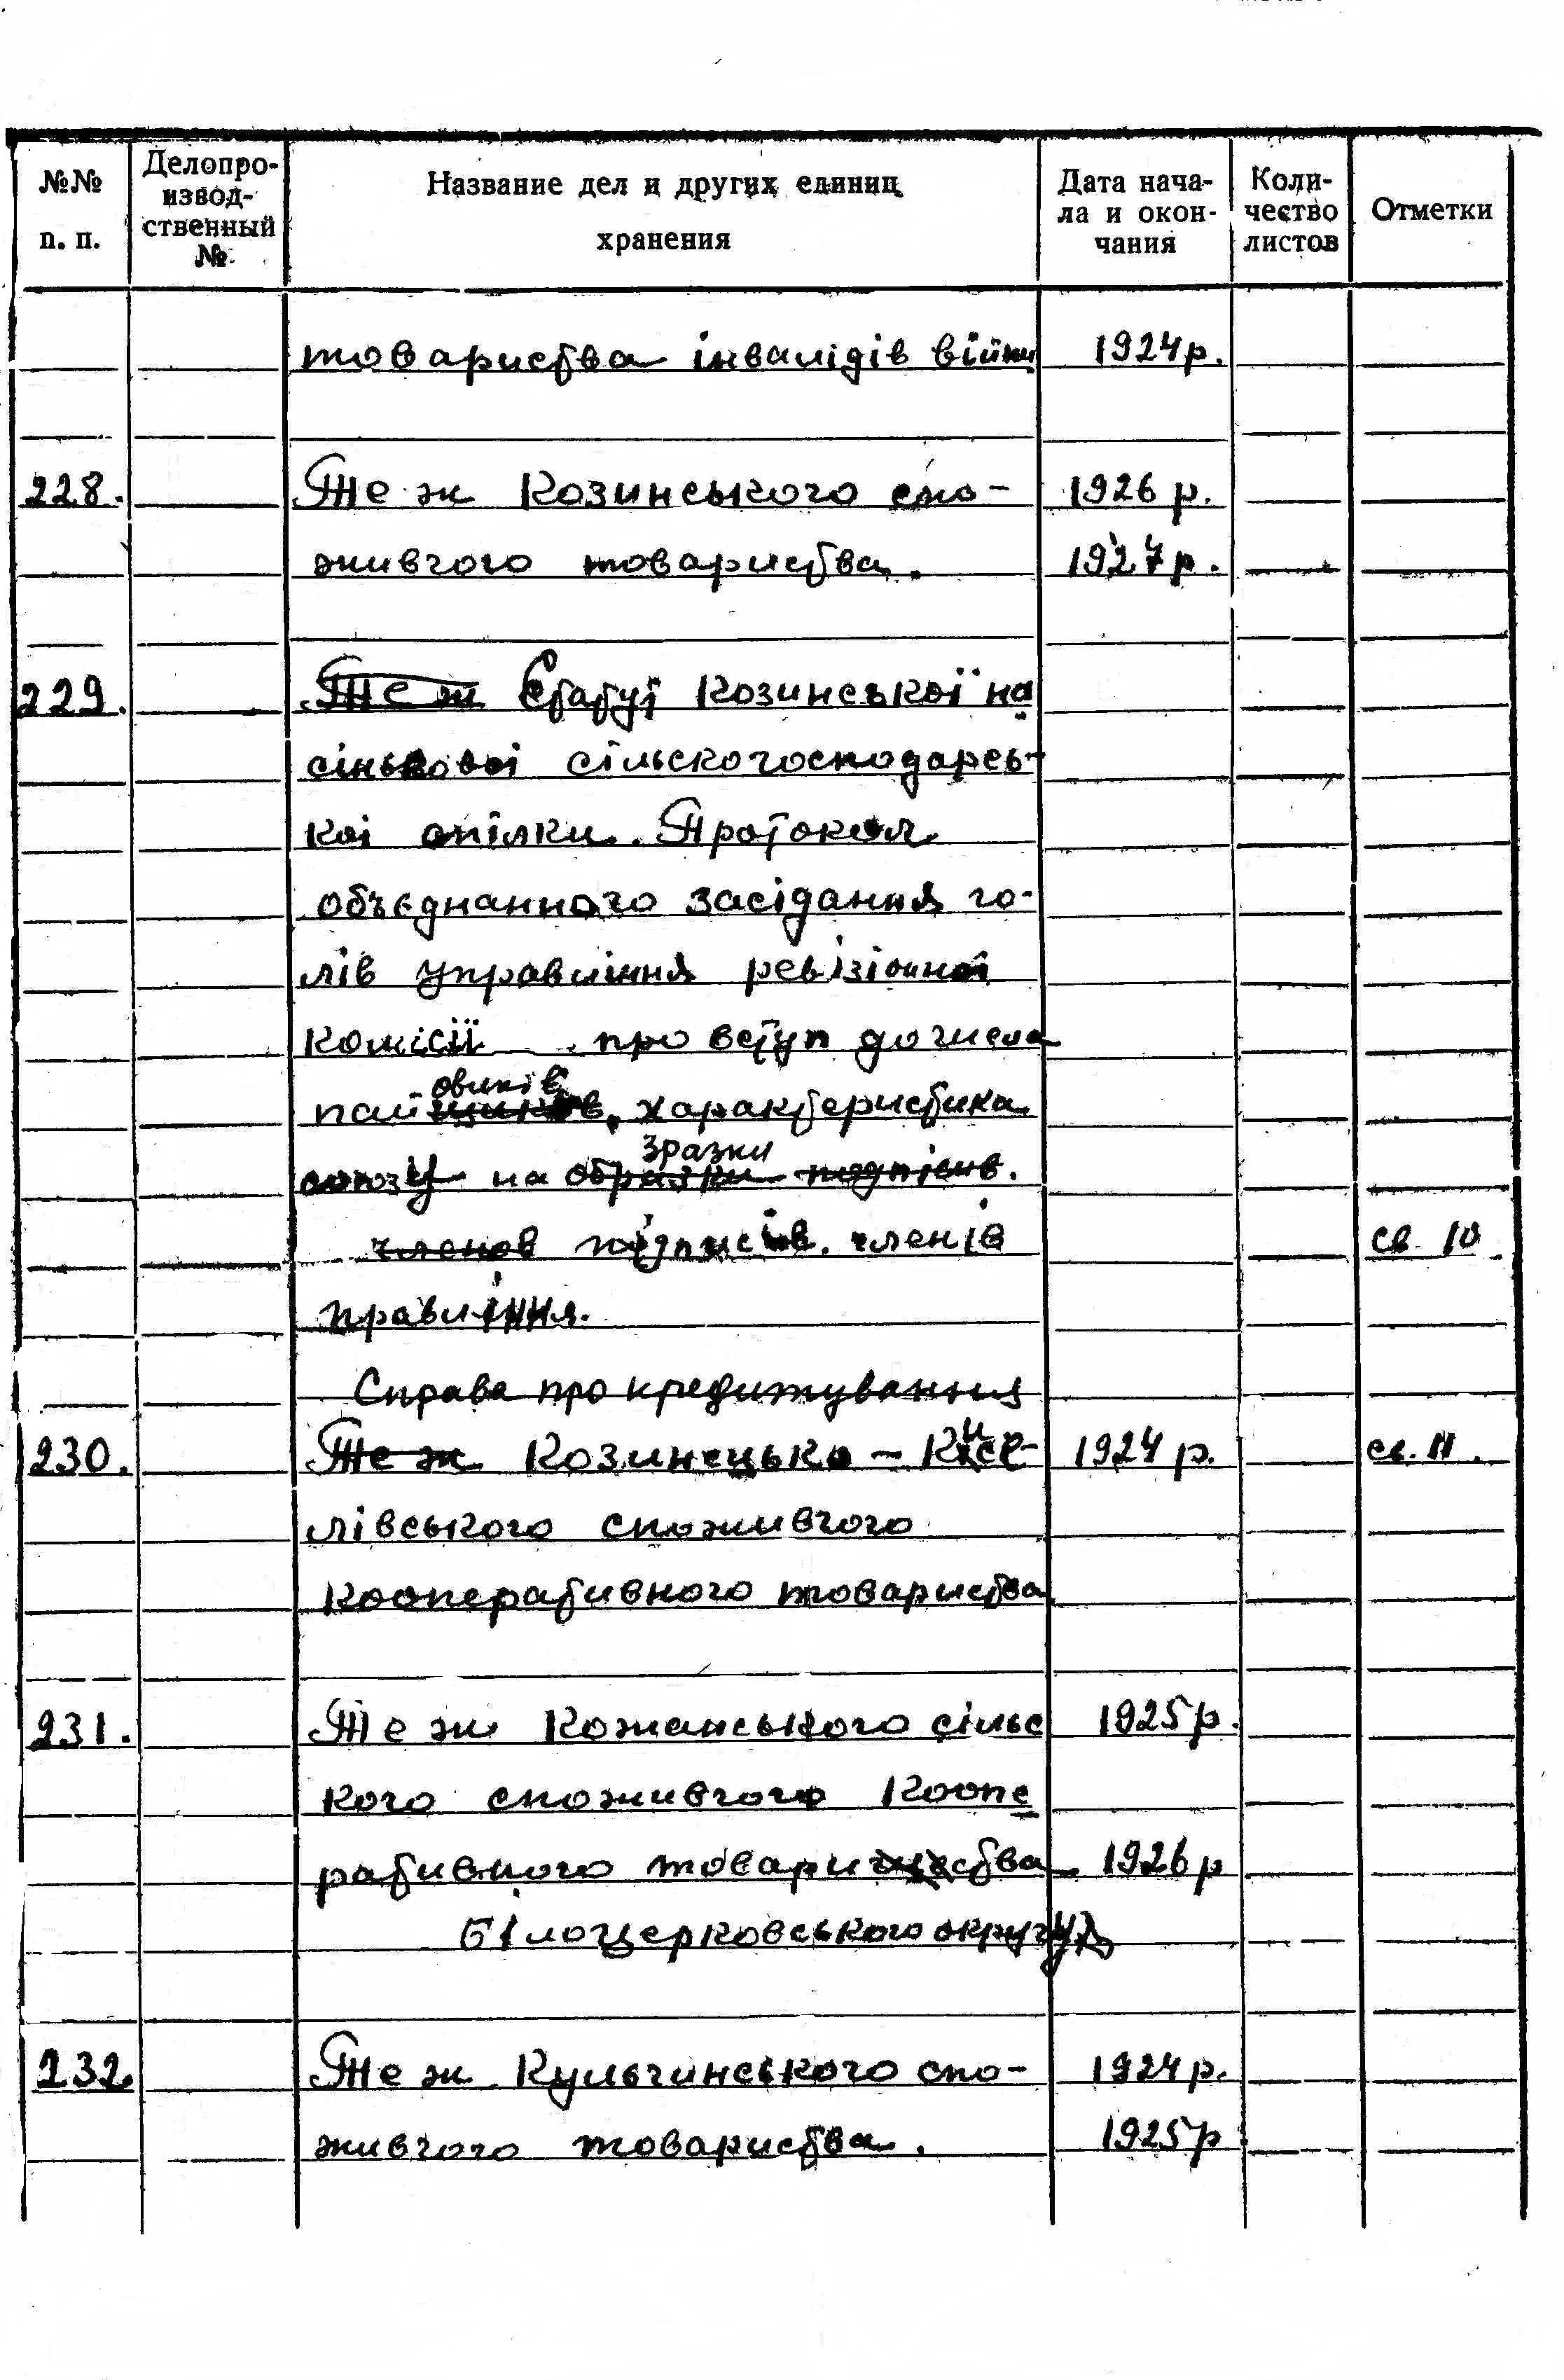 №№ п. п. Делопроизводственный № Название дел и других единиц хранения Дата начала и окончания Количество листов Отметки
товариства інвалідів війни 1924 р.
228. Те ж Козинського спо- 1926 р.
живчого товариства. 1927 р.
229. Те ж Статут Козинської на
сіньєвоі сільскогосподарсь-
коі спілки. Протокол
объєднанного засідання го-
лів управління ревізіонної
комісії про вступ до числа
овиків
пайщиків, характеристика
зразки
союзу на образки подпісив.
членов підписів. членів св. 10
правління.
Справа про кредитування
230. Те ж Козинецько – Кисе- 1924 р. св. 11.
лівського споживчого
кооперативного товариства
231. Те ж Кожанського сільс 1925 р.
кого споживчого коопе
ративного товариства 1926 р
Білоцерковського округу
232. Те ж Кульчинського спо- 1924 р.
живчого товариства. 1925 р